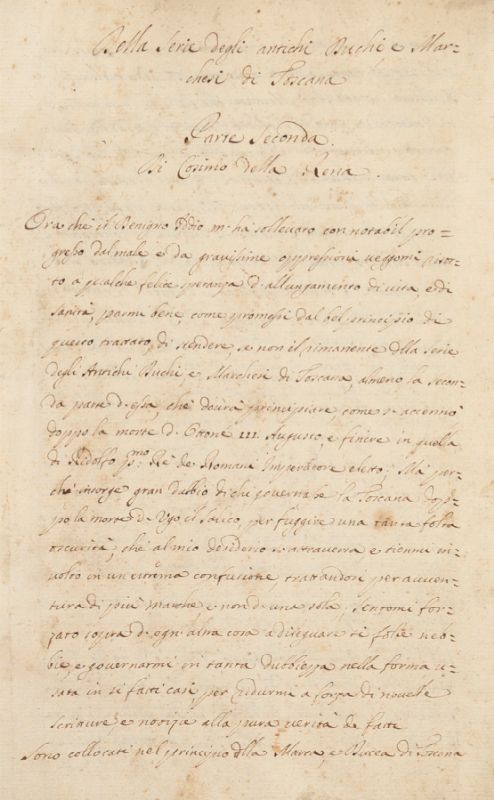 Della Serie degli antichi Duchi e Mar=
chesi di Toscana
Parte Seconda.
Di Cosimo della Rena.
Ora che il Benigno Iddio m'ha sollevato con notabil pro=
gresso dal male e da gravissime oppressioni veggomi risor=
to a qualche felice speranza d'allungamento di vita, e di
sanità, parmi bene, come promessi dal bel principio di
questo trattato, di stendere, se non il rimanente della Serie
degli Antichi Duchi e Marchesi di Toscana, almeno la secon=
da parte d'essa, che dovrà principiare, come s'accennò
doppo la morte d'Ottone III. Augusto, e finire in quella
di Ridolfo p.mo Rè de Romani Imperatore eletto; Mà per=
chè insorge gran dubbio di chi governasse la Toscana dop=
po la morte d'Ugo il Salico, per fuggire una tanta folta
oscurità, che al mio desiderio s'attraversa e tienmi in=
volto in un'estrema confusione, trattandosi per avven=
tura di più Marche e non d'una sola; sentomi for=
zato sopra d'ogn'altra cosa a dileguare sì folte neb=
bie, e governarmi in tanta dubbiezza nella forma u=
sata in sì fatti casi, per ridurmi a forza di novelle
scritture, e notizie alla pura verità de fatti
Sono collocati nel principio della Marca, e Ducea di Toscana